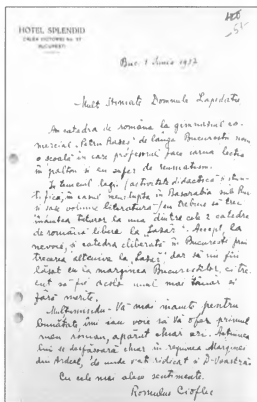 HOTEL SPLENDID
CALEA VICTORIEI No. 37
BUCUREȘTI
-51-
Buc. 1 Iunie 1937
Mult stimate Domnule Lapedatu
Am catedra de româna la gimnaziul co-
mercial "Petru Rareș" de lângă București
o școală în care profesorul face iarna lecție
în palton și eu sufer de reumatism.
În temeiul legii, activitate didactică și știin-
țifică, în
și șase volume literatură - trebuia să trec
înaintea tuturor la una dintre cele 2 catedre
de română libere la "Lazăr". Accept, la
nevoie, o catedră eliberată în București prin
trecerea altcuiva la "Lazăr", dar să nu fiu
lăsat eu la marginea Bucureștilor, cu tre-
cut să fie acolo unul mai tânăr și
fără merite.
Mulțumindu-Vă mai înainte pentru
bunătate, îmi iau voie să Vă ofer primul
meu roman, apărut chiar azi. Acțiunea
lui se desfășoară chiar în regiunea Marginei
din Ardeal, de unde v-ați ridicat și D-Voastră
Cu cele mai alese sentimente.
Romulus Cioflec